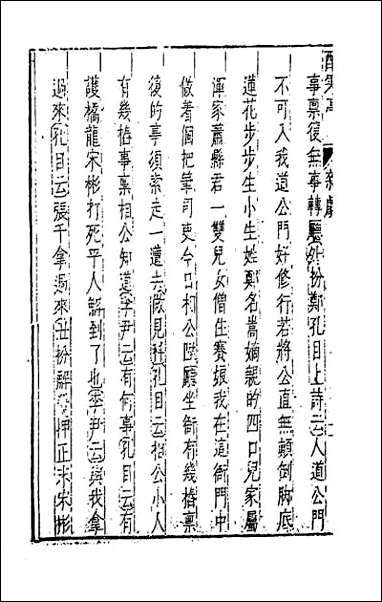 酷寒亭 雜劇
事禀復無事轉廳外扮鄭孔目上詩云人道公門
不可入我道公門好修行若將公直無顛倒脚底
蓮花步步生小生姓鄭名嵩嫡親的四口兒家屬
渾家蕭縣君一雙兒女僧住賽娘我在這衙門中
做着個把筆司吏今日相公陞廳坐衙有幾樁禀
復的事須索走一遭去做見科孔目云相公小人
有幾樁事禀相公知道李尹云有何事孔目云有
護橋龍宋彬打死平人解到了也李尹云與我拿
過來孔目云張千拿過來丑扮解子押正末宋彬